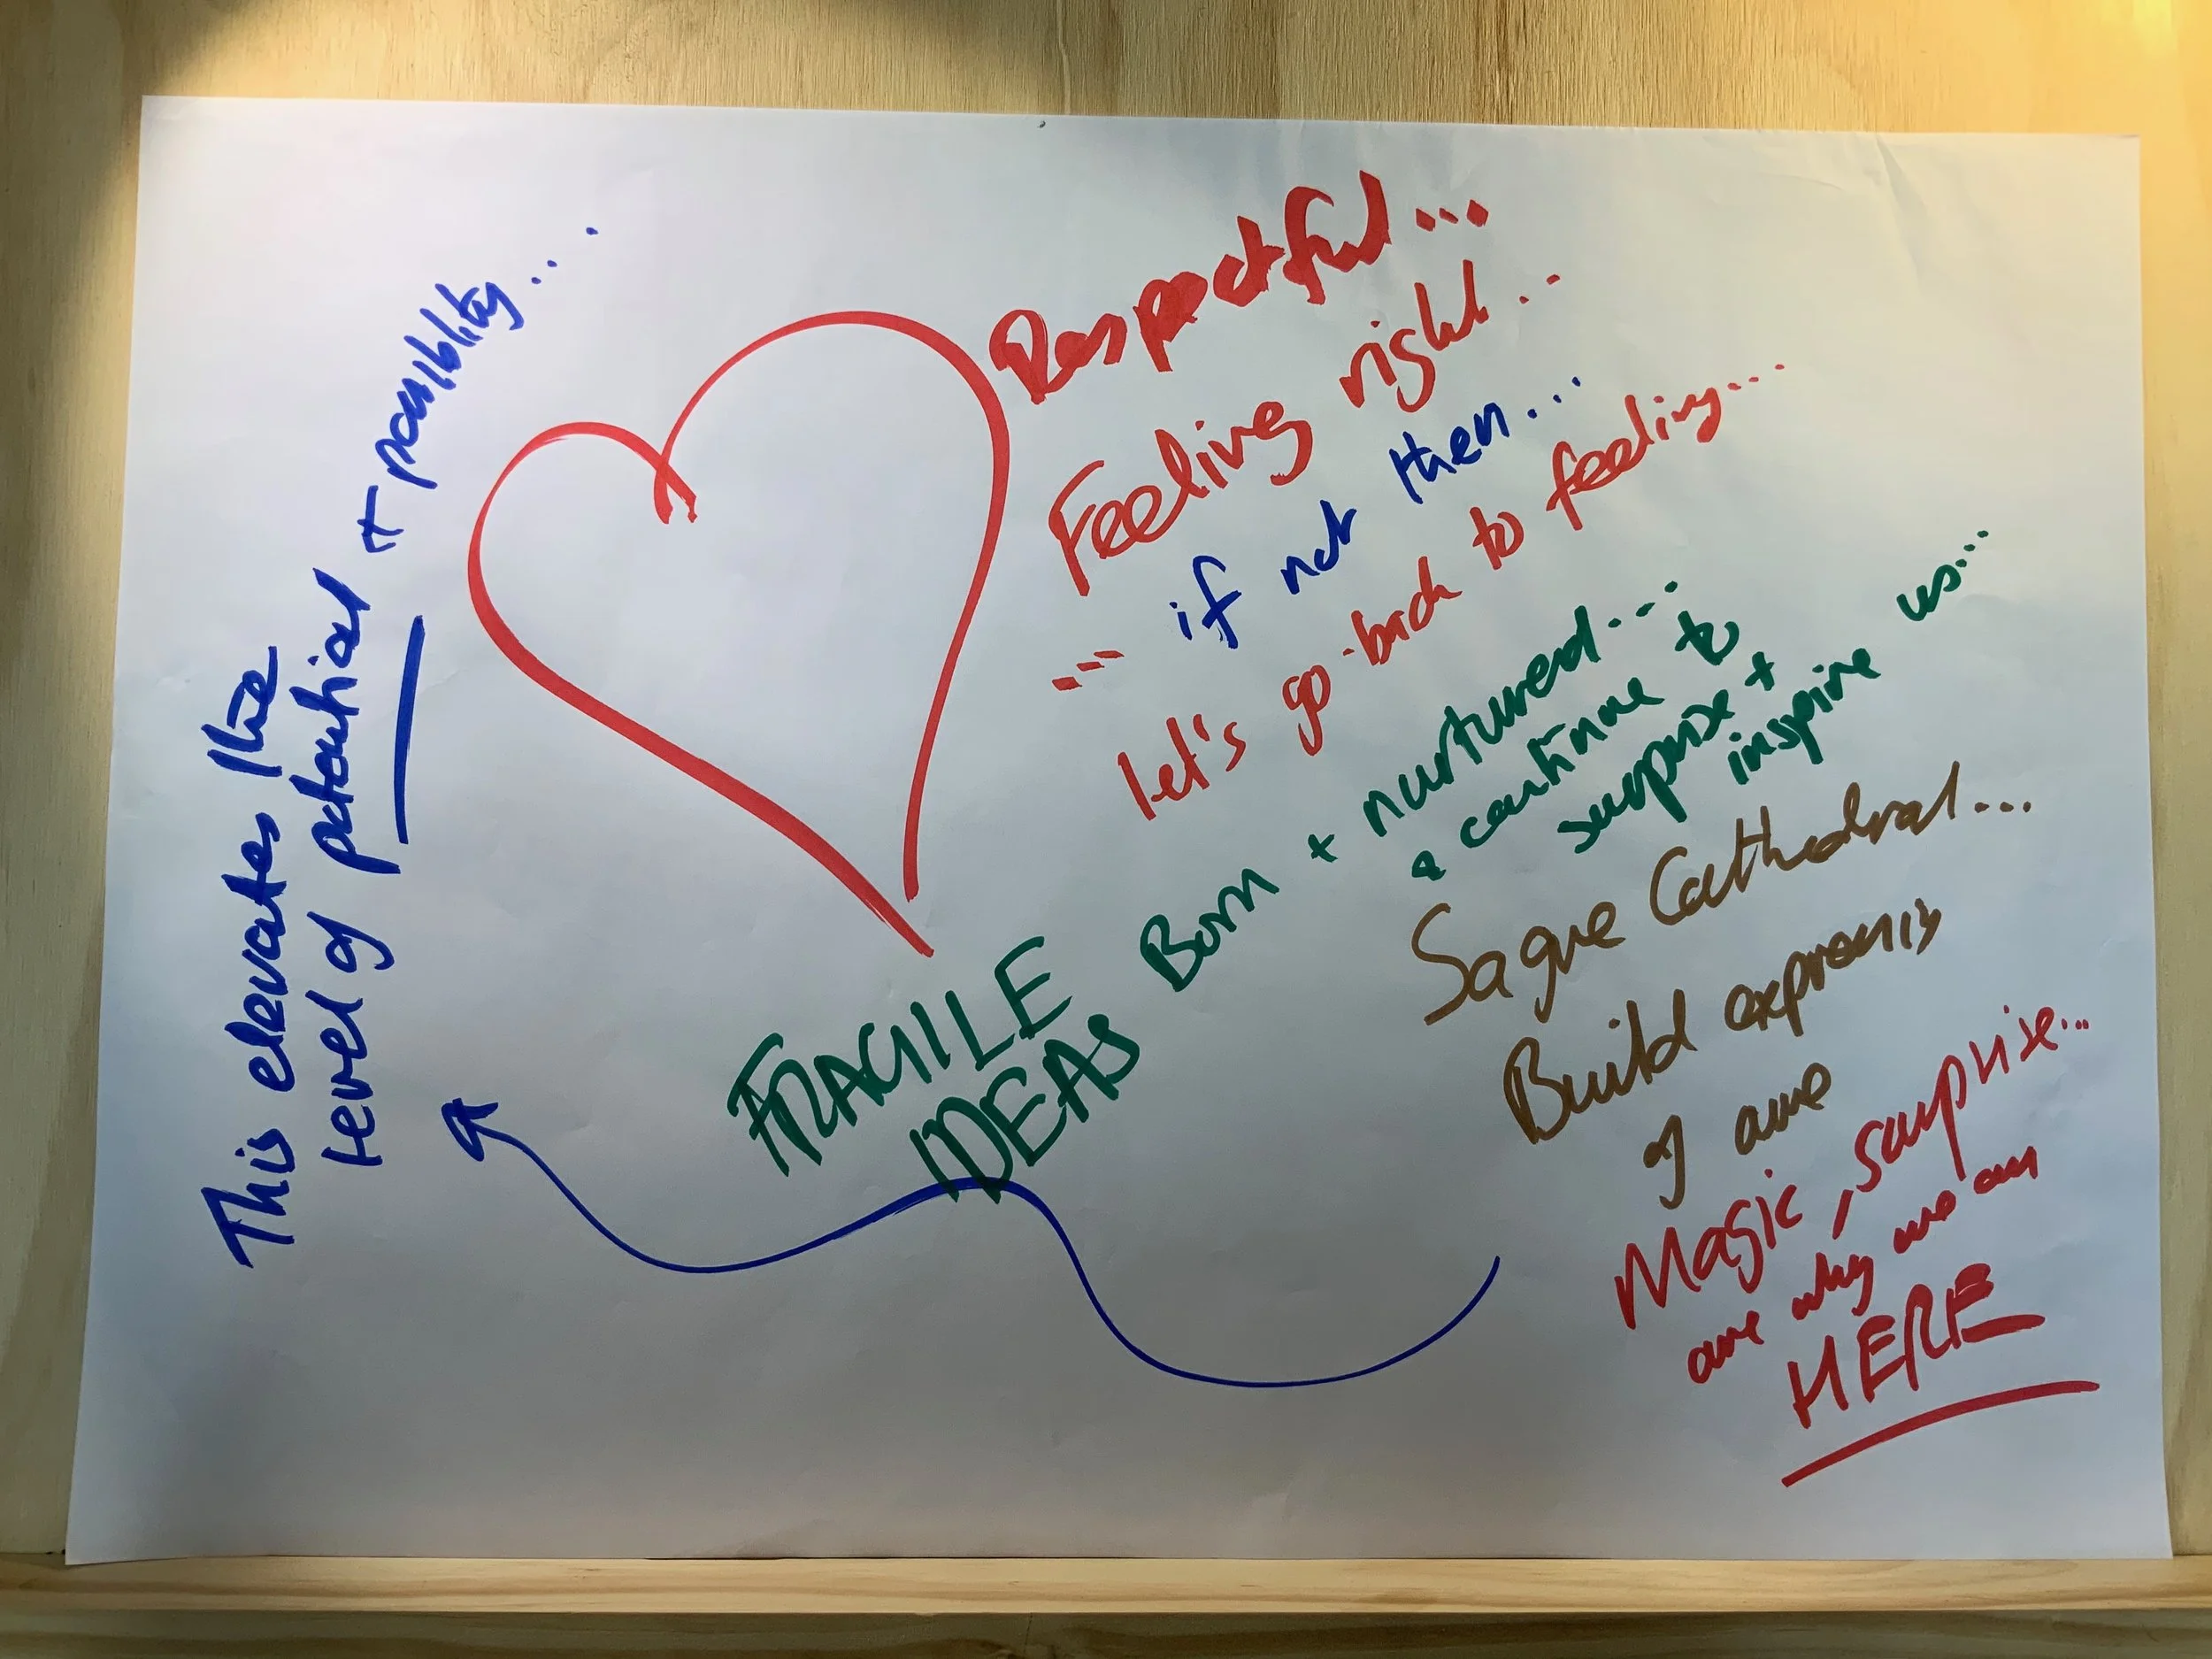 This elevates the
level of potential + possibility....
Respectful...
Feeling right...
--- if not then...
let's go back to feeling....
FRAGILE
IDEAS
Born + nurtured....
& continue to
surprise +
inspire us...
Cathedral...
Build
of awe
Magic, surprise...
awe why we are
HERE